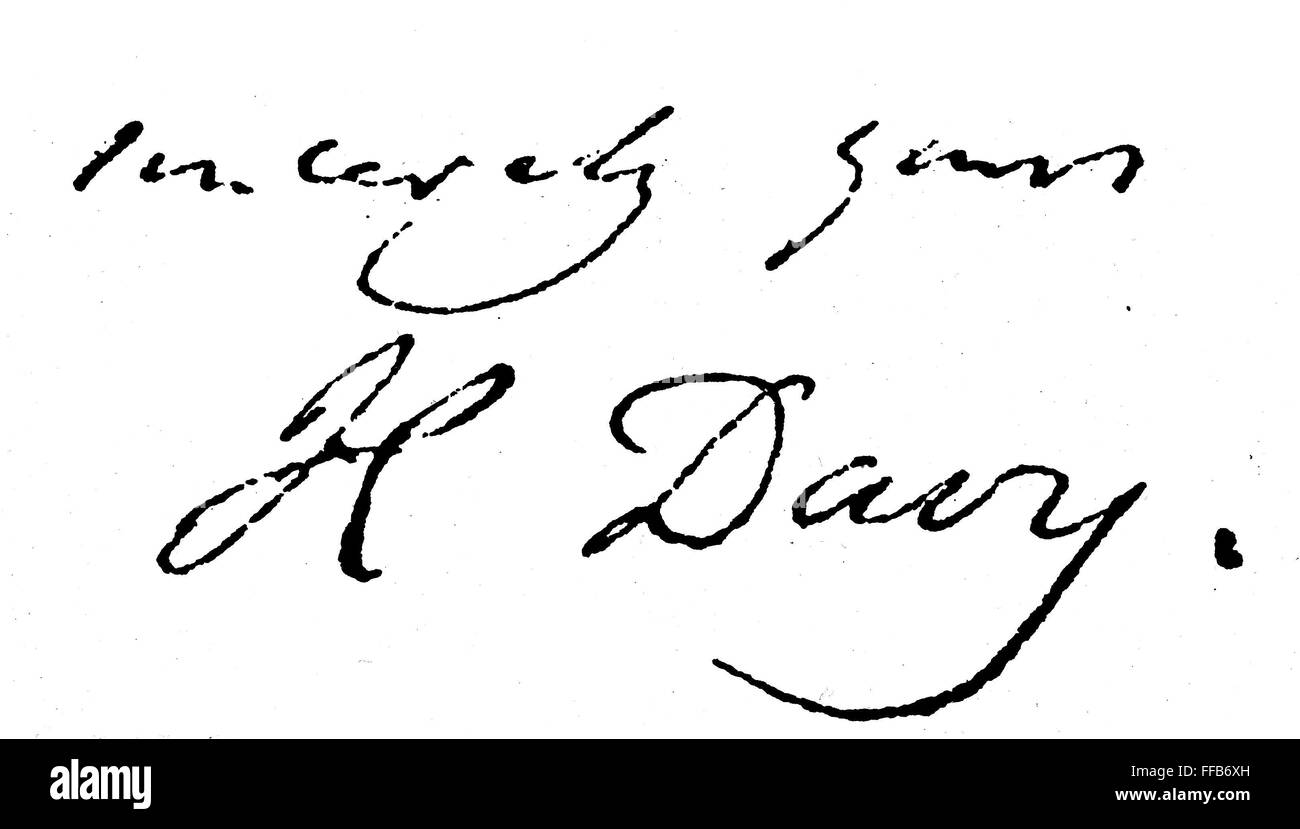 sincerely yours
H Davy.
alamy
Image ID: FFB6XH
www.alamy.com